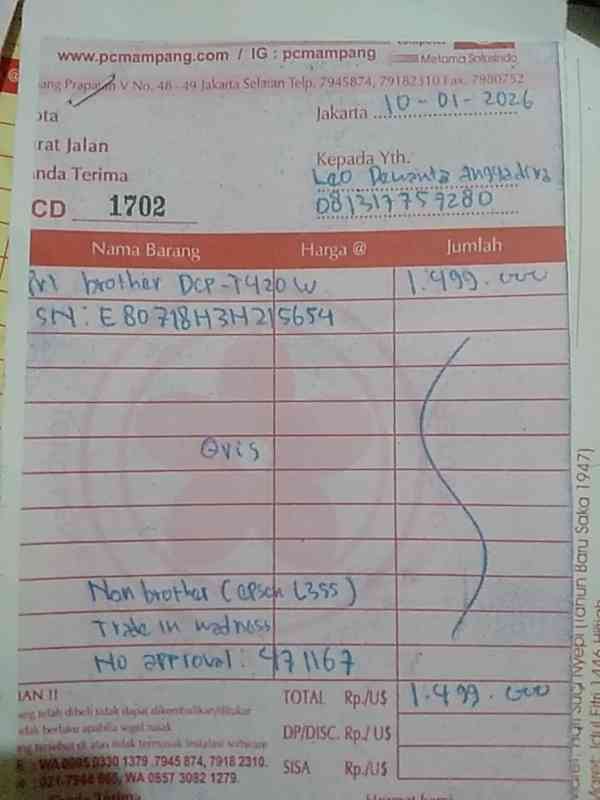 www.pcmampang.com / IG : pcmampang
Metama Solusindo
ang Prapatan V No. 48 - 49 Jakarta Selatan Telp. 7945874, 79182310 Fax. 7980752
ota
Jakarta 10-01-2026
rat Jalan
Kepada Yth.
nda Terima
Leo Dewanta Anggadirxa
081317757280
CD 1702
Nama Barang Harga @ Jumlah
brother DCP-T420W 1.499.000
SN: E80718H3H215654
Qris
Non brother (epson L355)
Trade in madness
No approval: 471167
IAN !!
TOTAL Rp./U$ 1.499.000
ang telah dibeli tidak dapat dikembalikan/ditukar
idak berlaku apabila segel rusak
DP/DISC. Rp./ U$
ng tersebut di atas tidak termasuk instalasi software
: WA 0895 0330 1379 .7945 874, 7918 2310.
SISA Rp./U$
: 021-7944 865, WA 0557 3082 1279.
Tanda Terima
Hormat kami
Maret: Hari Suci Nyepi (Tahun Baru Saka 1947)
Maret: Idul Fitri 1446 Hijriah